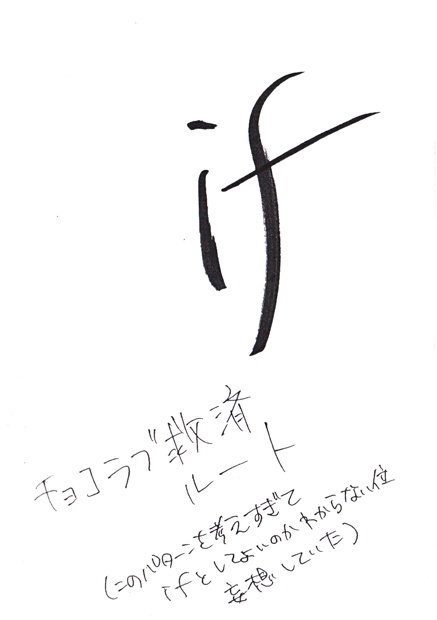 if
チョコラブ救済
ルート
(このパターンを考えすぎて
ifとしてよいのかわからない位
妄想していた)